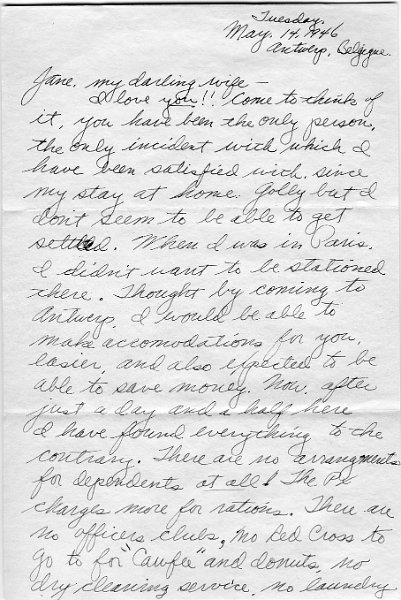 Tuesday.
May. 14, 1946
Antwerp, Belgique.
Jane, my darling wife —
I love you!! Come to think of
it, you have been the only person,
the only incident with which I
have been satisfied with since
my stay at home. Golly but I
don't seem to be able to get
settled. When I was in Paris.
I didn't want to be stationed
there. Thought by coming to
Antwerp, I would be able to
make accomodations for you,
easier, and also expected to be
able to save money. Now, after
just a day and a half here
I have found everything to the
contrary. There are no arrangments
for dependents at all! The Px
charges more for rations. There are
no officers clubs, no Red Cross to
go to for "Cawfee" and donuts, no
dry cleaning service, no laundry